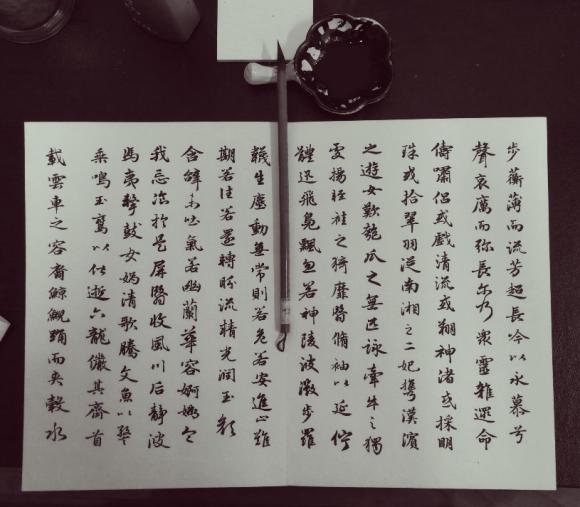 步蘅薄而流芳超長吟以永慕兮
聲哀厲而弥長尔乃衆靈雜遝命
儔嘯侶或戲清流或翔神渚或採明
珠或拾翠羽從南湘之二妃攜漢濱
之遊女歎匏瓜之無匹詠牽牛之獨
處揚輕袿之猗靡翳脩袖以延佇
體迅飛鳧飄忽若神陵波微步羅
襪生塵動無常則若危若安進止難
期若往若還轉眄流精光潤玉顏
含辭未吐氣若幽蘭華容婀娜令
我忘飡於是屏翳收風川后靜波
馮夷擊鼓女媧清歌騰文魚以警
乘鳴玉鸞以偕逝六龍儼其齊首
載雲車之容裔鯨鯢踊而夾轂水